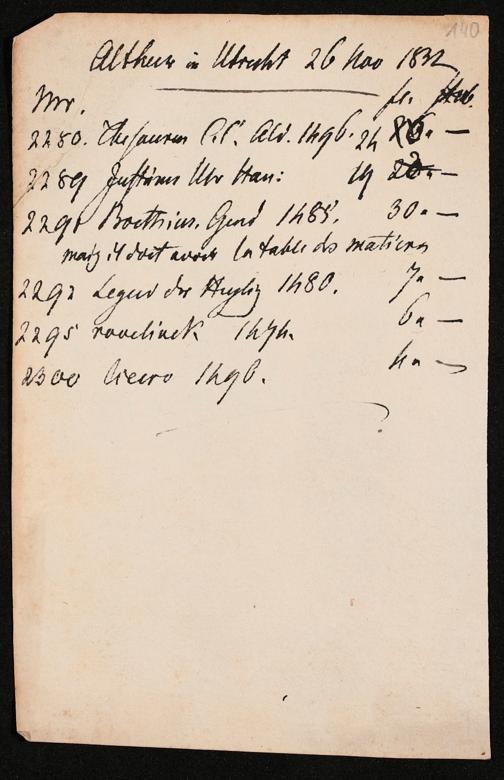 140
Altheer in Utrecht 26 Nov 1832
Nr. fl. Stub.
2280. Thesaurus C. C. Ald. 1496. 24 86. —
2289 Justinus Ulr Han: 19 20. —
2291 Boethius. Gend 1485. 30. —
mais il doit avoir la table des matieres
2292 Legend der Heylig 1480. 7. —
2295 rovelinck 1474. 6. —
2300 Cicero 1496. 4. —